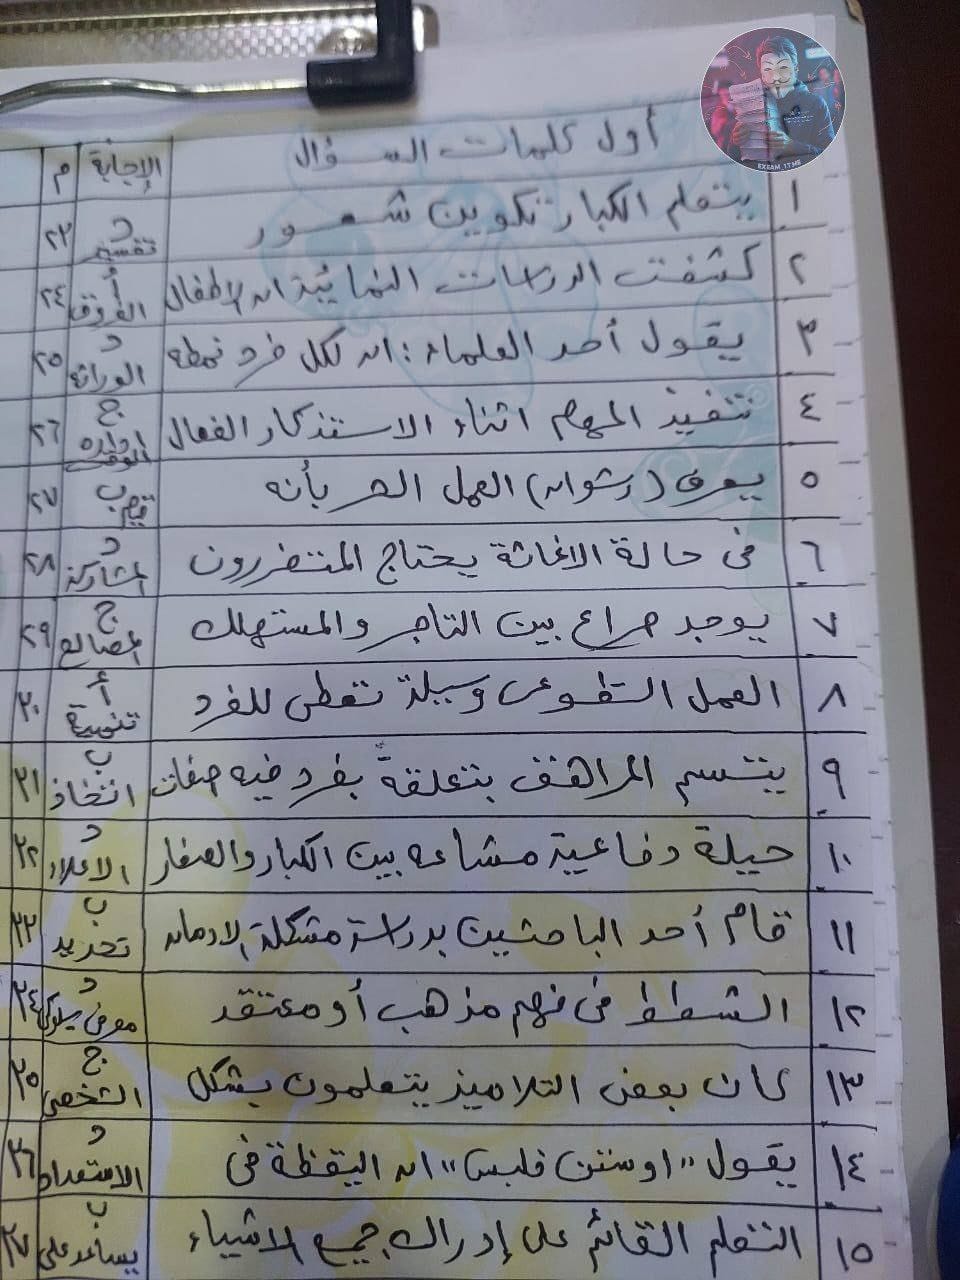 EXEAM 1TME
أول كلمات السؤال الإجابة م
١ يتعلم الكبار تكوين شعور د تفسير ٢٣
٢ كشفت الدراسات النمائية ان الاطفال أ الفروق ٢٤
٣ يقول أحد العلماء: ان لكل فرد نمطه د الوراثة ٢٥
٤ تنفيذ المهام اثناء الاستذكار الفعال ج ادارة الوقت ٢٦
٥ يعرف (رشوان) العمل الحر بأنه ب قيم ٢٧
٦ فى حالة الاغاثة يحتاج المتضررون د المشاركة ٢٨
٧ يوجد صراع بين التاجر والمستهلك ج المصالح ٢٩
٨ العمل التطوعى وسيلة تعطى للفرد أ تنمية ٣٠
٩ يتسم المراهق بتعلقة بفرد فيه صفات ب اتخاذ ٣١
١٠ حيلة دفاعية مشاعه بين الكبار والصغار د الاعلاء ٣٢
١١ قام أحد الباحثين بدراسة مشكلة الادمان ب تحديد ٣٣
١٢ الشطط فى فهم مذهب أو معتقد د معرفى سلوكى ٣٤
١٣ كان بعض التلاميذ يتعلمون بشكل ج الشخصى ٣٥
١٤ يقول "اوستن فلبس" ان اليقظة فى د الاستعداد ٣٦
١٥ التعلم القائم على إدراك جميع الاشياء ب يساعد على ٣٧